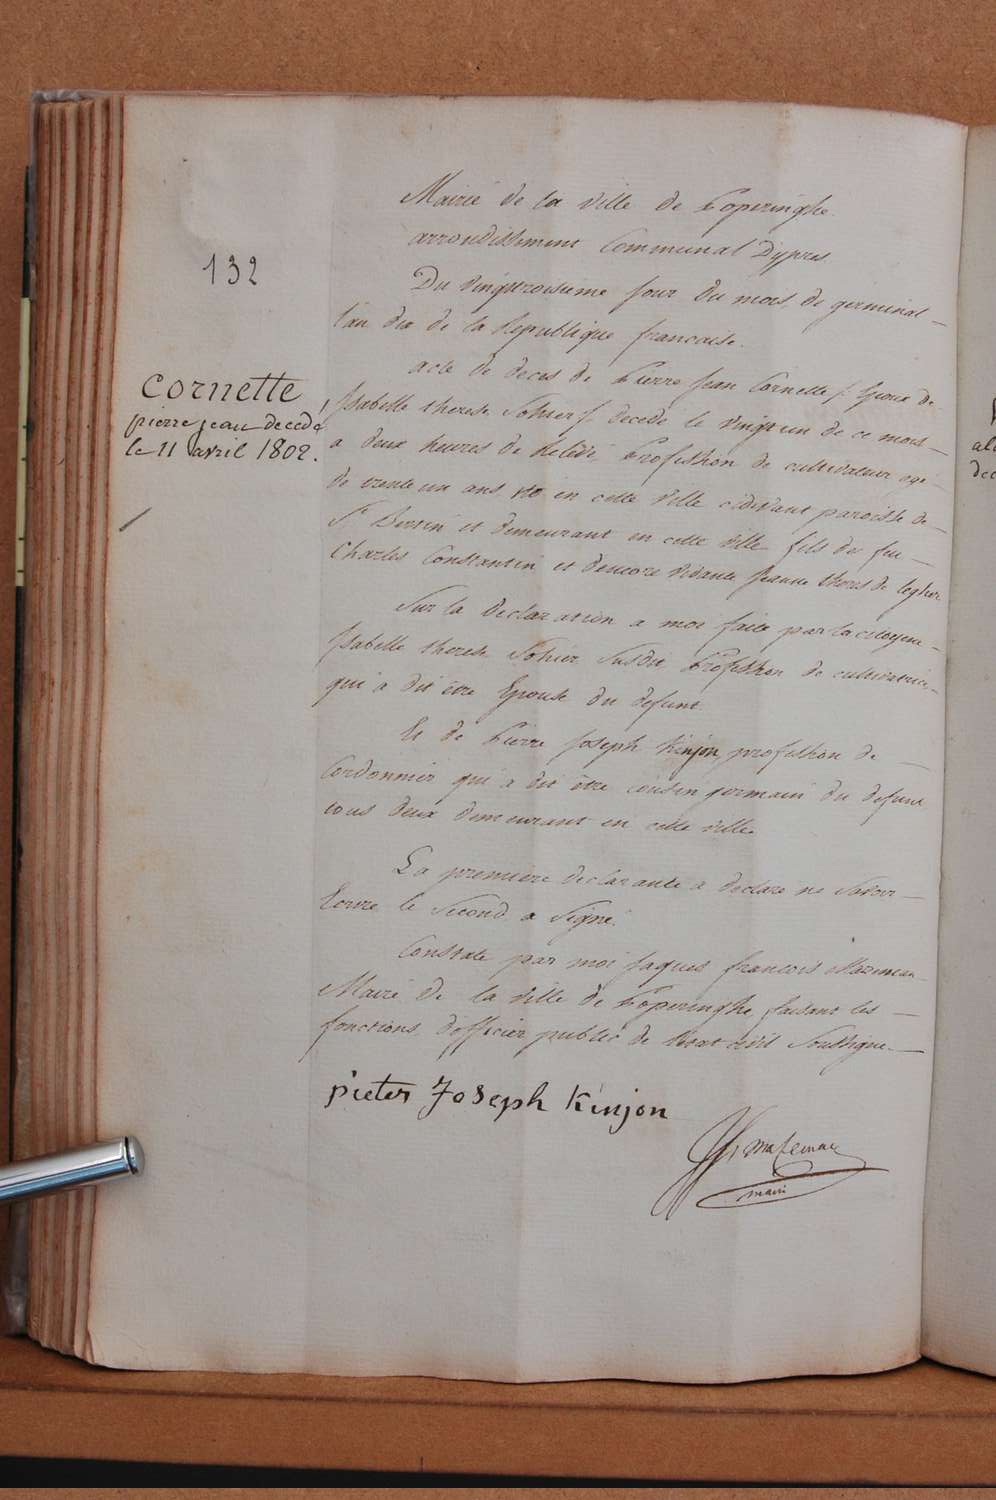 132
cornette,
pierre jean decedé
le 11 avril 1802.
Mairie de la ville de Poperinghe
arrondissement Communal Dypres
Du vingtroisieme Jour du mois de germinal
l'an dix de la Republique francaise.
acte de deces de Pierre Jean Cornette / Epoux de
Isabelle therese Sohier / decedé le vingt un de ce mois
a deux heures de Profession de cultivateur agé
de trente un ans né en cette ville cidevant paroisse de
St Bertin et demeurant en cette ville fils de feu
Charles Constantin et d'encore vivante Jeanne de
Sur la declaration a moi faite par la citoyenne
Isabelle therese Sohier Susdit Profession de cultivatrice
qui a dit être Epouse du defunt
Et de Pierre Joseph Kinjon, profession de
Cordonnier qui a dit être cousin germain du defunt
tous deux demeurant en cette ville.
La premiere declarante a declaré ne Savoir
Ecrire le Second a Signé.
Constaté par moi Jaques francois Mazeman
Maire de la ville de Poperinghe, faisant les
fonctions d'officier public de l'etat civil Soussigné
pieter Joseph Kinjon
Mazeman
maire